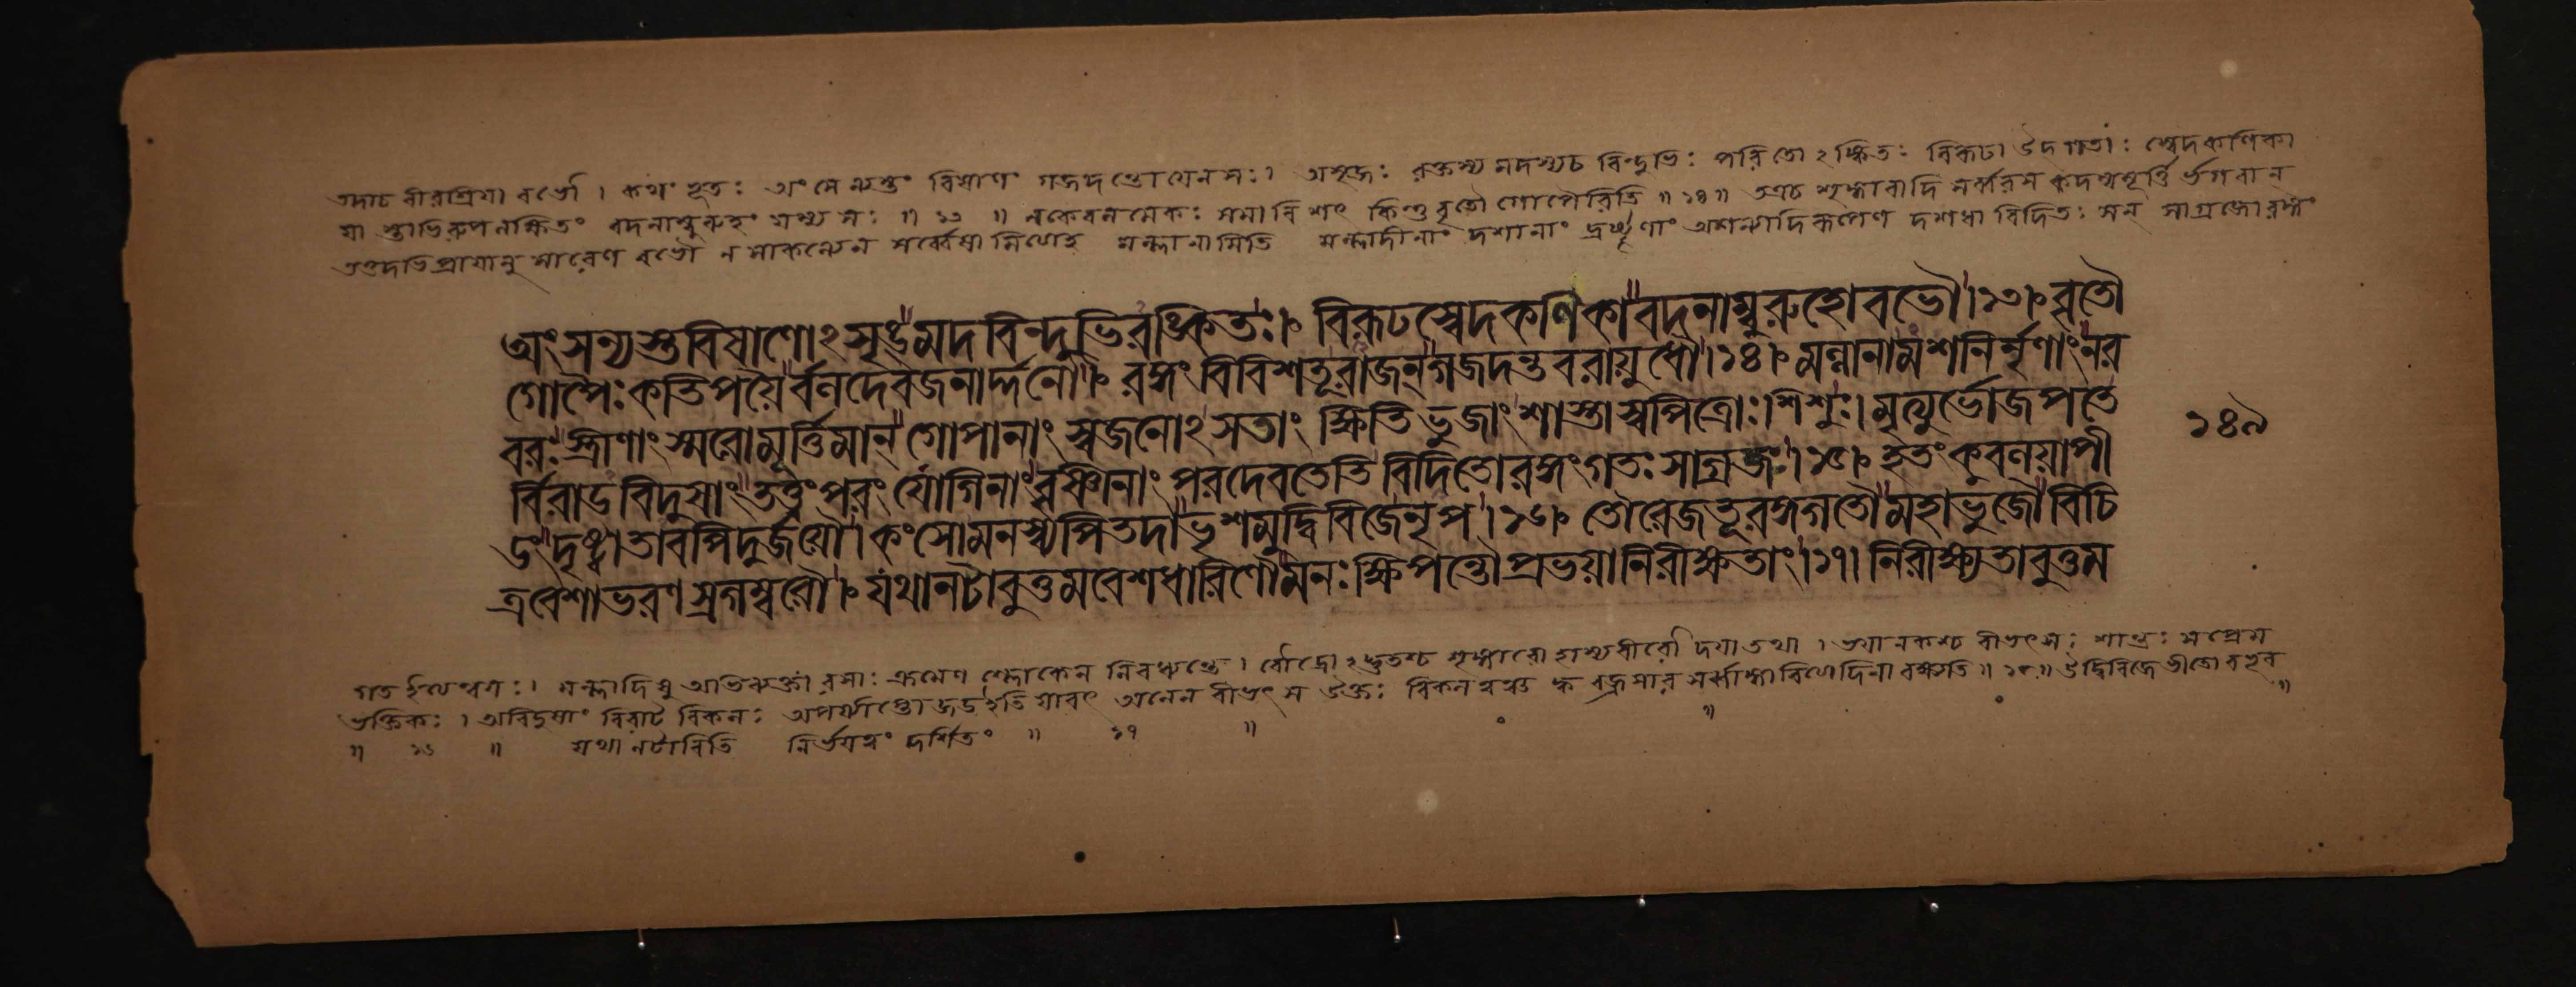 তদাচ বীরশ্রিয়া বভৌ । কথং ভূতঃ অংসে ন্যস্তং বিষাণং গজদন্তো যেন সঃ । অসৃজঃ রক্তস্য মদস্যচ বিন্দুভিঃ পরিতোঽঙ্কিতঃ বিরূঢা উদ্গতাঃ স্বেদকণিকা
যা স্তাভিরুপলক্ষিতং বদনাম্বুরুহং যস্য সঃ ॥ ১৩ ॥ নকেবলমেকঃ সমাবিশৎ কিন্তু বৃতৌ গোপৈরিতি ॥ ১৪ ॥ তত্রচ শৃঙ্গারাদি সর্ব্বরস কদম্বমূর্ত্তি র্ভগবান্
তত্তদভিপ্রায়ানুসারেণ বভৌ ন সাকল্যেন সর্ব্বেষামিত্যাহ মল্লানামিতি মল্লাদীনাং দশানাং দ্রষ্টৄণাং অশন্যাদিরূপেণ দশধা বিদিতঃ সন্ সাগ্রজো রঙ্গং
অংসন্যস্তবিষাণোঽসৃঙ্মদবিন্দুভিরঙ্কিতঃ। বিরূঢস্বেদকণিকাবদনাম্বুরুহোবভৌ।১৩। বৃতৌ
গোপৈঃকতিপয়ৈর্বলদেবজনার্দ্দনৌ। রঙ্গংবিবিশতূরাজন্গজদন্তবরায়ুধৌ।১৪। মল্লানামশনির্নৃণাংনর
বরঃস্ত্রীণাংস্মরোমূর্ত্তিমান্গোপানাংস্বজনোঽসতাং ক্ষিতিভুজাংশাস্তাস্বপিত্রোঃশিশুঃ।মৃত্যুর্ভোজপতে
র্বিরাডবিদুষাংতত্ত্বংপরংযোগিনাংবৃষ্ণীনাং পরদেবতেতিবিদিতোরঙ্গংগতঃসাগ্রজঃ।১৫। হতংকুবলয়াপী
ডংদৃষ্ট্বাতাবপিদুর্জয়ৌ।কংসোমনস্ব্যপিতদাভৃশমুদ্বিবিজেনৃপ।১৬। তৌরেজতূরঙ্গগতৌমহাভুজৌবিচি
ত্রবেশাভরণস্রগম্বরৌ। যথানটাবুত্তমবেশধারিণৌমনঃক্ষিপন্তৌপ্রভয়ানিরীক্ষতাং।১৭।নিরীক্ষ্যতাবুত্তম
১৪৯
গত ইত্যন্বয়ঃ। মল্লাদিষু অভিব্যক্তা রসাঃ ক্রমেণ শ্লোকেন নিবধ্যন্তে। রৌদ্রোঽদ্ভুতশ্চ শৃঙ্গারো হাস্যবীরৌ দয়া তথা । ভয়ানকশ্চ বীভৎসঃ শান্তঃ সপ্রেম
ভক্তিকঃ । অবিদুষাং বিরাট্ বিকলঃ অপর্য্যাপ্তো জড ইতি যাবৎ অনেন বীভৎস উক্তঃ বিকলত্বঞ্চ ক্ব বজ্রসার সর্ব্বাঙ্গাবিত্যাদিনা বক্ষ্যতি ॥ ১৫ ॥ উদ্বিবিজে ভীতো বভূব
॥ ১৬ ॥ যথা নটাবিতি নির্ভয়ত্বং দর্শিতং ॥ ১৭ ॥